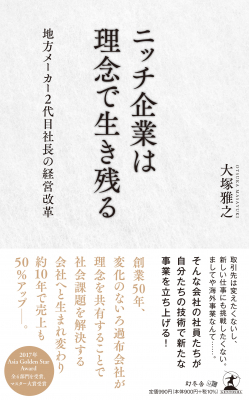 ニッチ企業は
理念で生き残る
地方メーカー2代目社長の経営改革
大塚雅之
OTSUKA MASAYUKI
取引先は変えたくないし、
新しい仕事にも挑戦したくない。
ましてや海外事業なんて……。
そんな会社の社員たちが
自分たちの技術で新たな
事業を立ち上げる!
創業50年、
変化のない過布会社が
理念を共有することで
社会課題を解決する
会社へと生まれ変わり
約10年で売上も
50%アップ——。
2017年
Asia Golden Star
Award
マスター大賞受賞
幻冬舎
定価990円(本体900円+税10%)